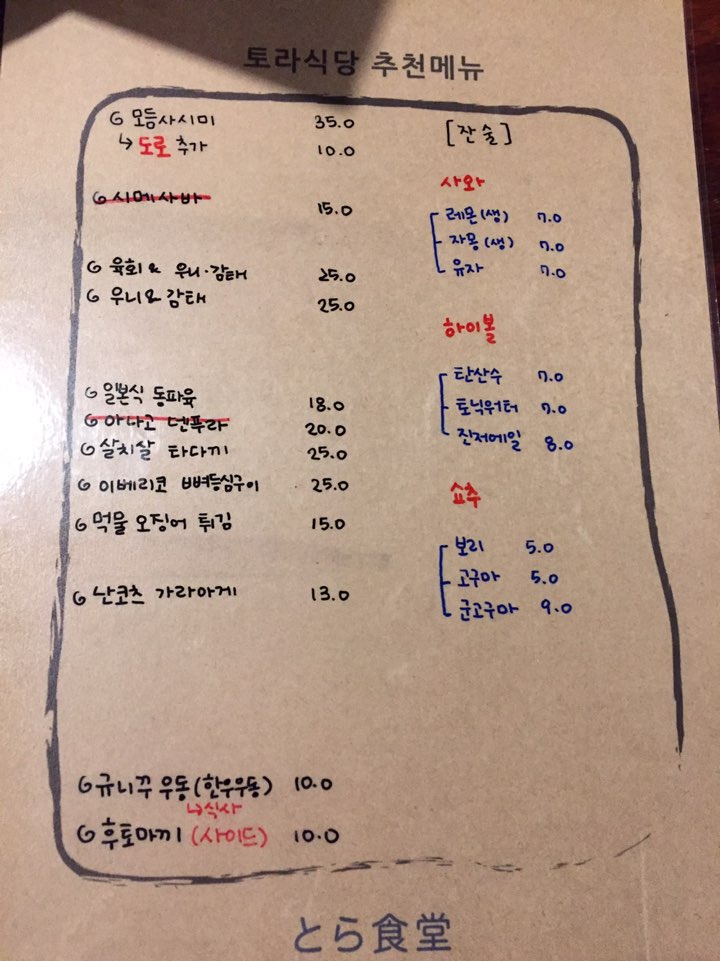 토라식당 추천메뉴
모듬사시미 35.0
↳ 도로 추가 10.0
시메사바 15.0
육회 & 우니·감태 25.0
우니 & 감태 25.0
일본식 동파육 18.0
아나고 덴푸라 20.0
살치살 타다끼 25.0
이베리코 뼈등심구이 25.0
먹물 오징어 튀김 15.0
난코츠 가라아게 13.0
규니꾸 우동 (한우우동) 10.0
↳식사
후토마끼 (사이드) 10.0
[잔술]
사와
레몬(생) 7.0
자몽(생) 7.0
유자 7.0
하이볼
탄산수 7.0
토닉워터 7.0
진저에일 8.0
쇼추
보리 5.0
고구마 5.0
군고구마 9.0
とら食堂